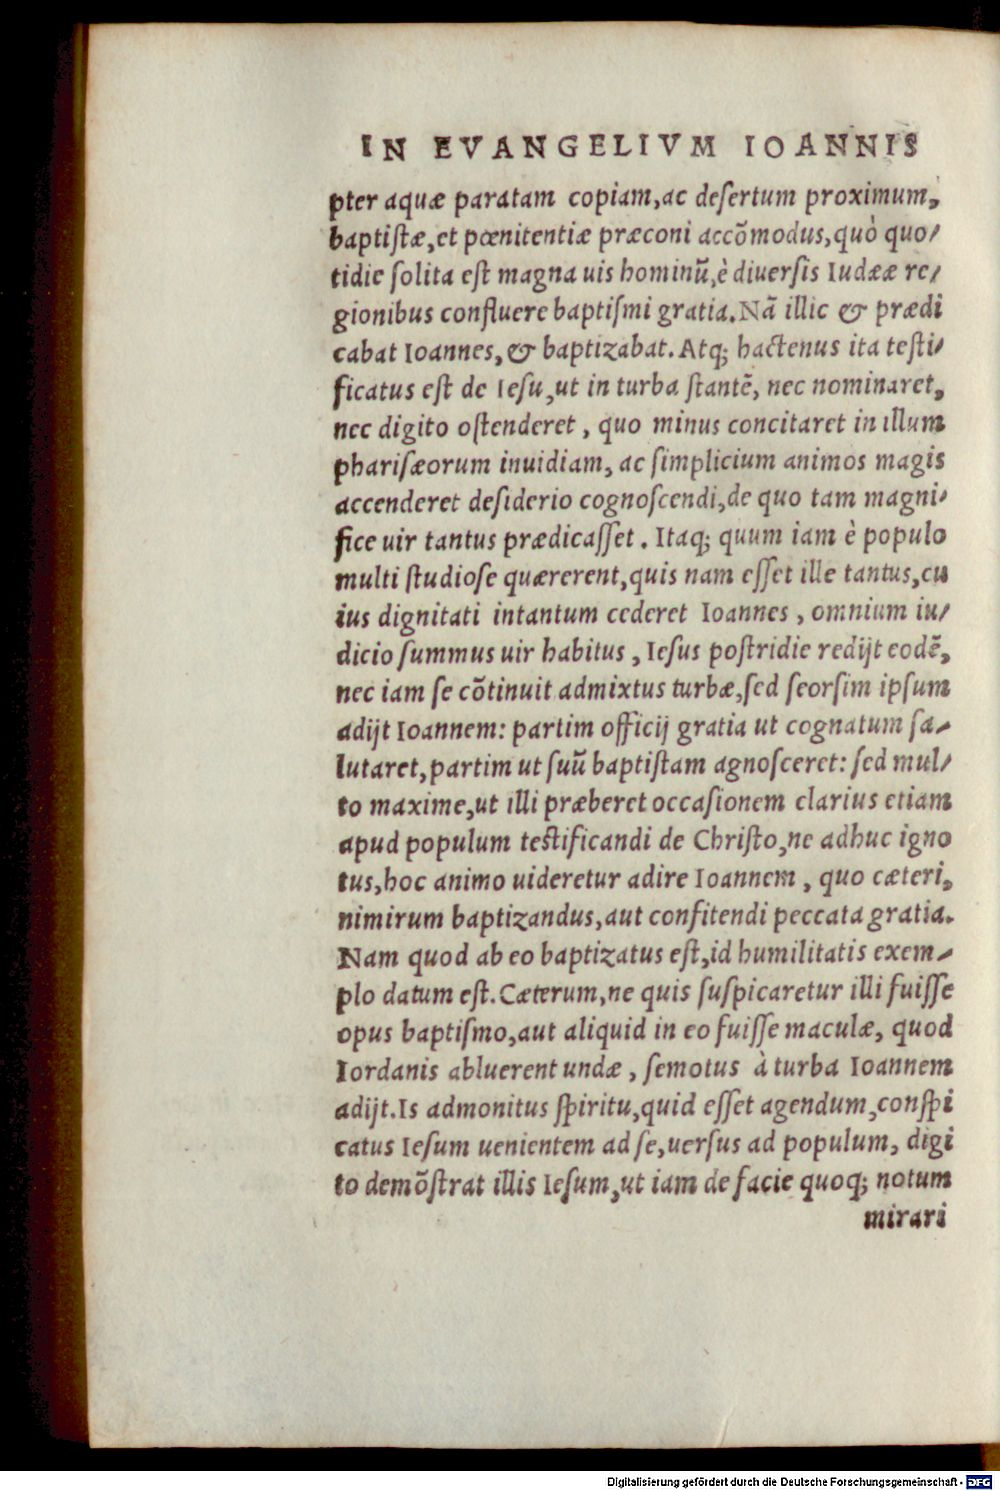 IN EVANGELIVM IOANNIS
pter aquæ paratam copiam, ac desertum proximum,
baptistæ, et pœnitentiæ præconi accõmodus, quò quo/
tidie solita est magna uis hominũ, è diuersis Iudææ re/
gionibus confluere baptismi gratia. Nã illic & prædi
cabat Ioannes, & baptizabat. Atq; hactenus ita testi/
ficatus est de Iesu, ut in turba stantẽ, nec nominaret,
nec digito ostenderet, quo minus concitaret in illum
pharisæorum inuidiam, ac simplicium animos magis
accenderet desiderio cognoscendi, de quo tam magni/
fice uir tantus prædicasset. Itaq; quum iam è populo
multi studiose quærerent, quis nam esset ille tantus, cu
ius dignitati intantum cederet Ioannes, omnium iu/
dicio summus uir habitus, Iesus postridie redijt eodẽ,
nec iam se cõtinuit admixtus turbæ, sed seorsim ipsum
adijt Ioannem: partim officij gratia ut cognatum sa/
lutaret, partim ut suũ baptistam agnosceret: sed mul/
to maxime, ut illi præberet occasionem clarius etiam
apud populum testificandi de Christo, ne adhuc igno
tus, hoc animo uideretur adire Ioannem, quo cæteri,
nimirum baptizandus, aut confitendi peccata gratia.
Nam quod ab eo baptizatus est, id humilitatis exem/
plo datum est. Cæterum, ne quis suspicaretur illi fuisse
opus baptismo, aut aliquid in eo fuisse maculæ, quod
Iordanis abluerent undæ, semotus à turba Ioannem
adijt. Is admonitus spiritu, quid esset agendum, conspi
catus Iesum uenientem ad se, uersus ad populum, digi
to demõstrat illis Iesum, ut iam de facie quoq; notum
mirari
Digitalisierung gefördert durch die Deutsche Forschungsgemeinschaft - DFG